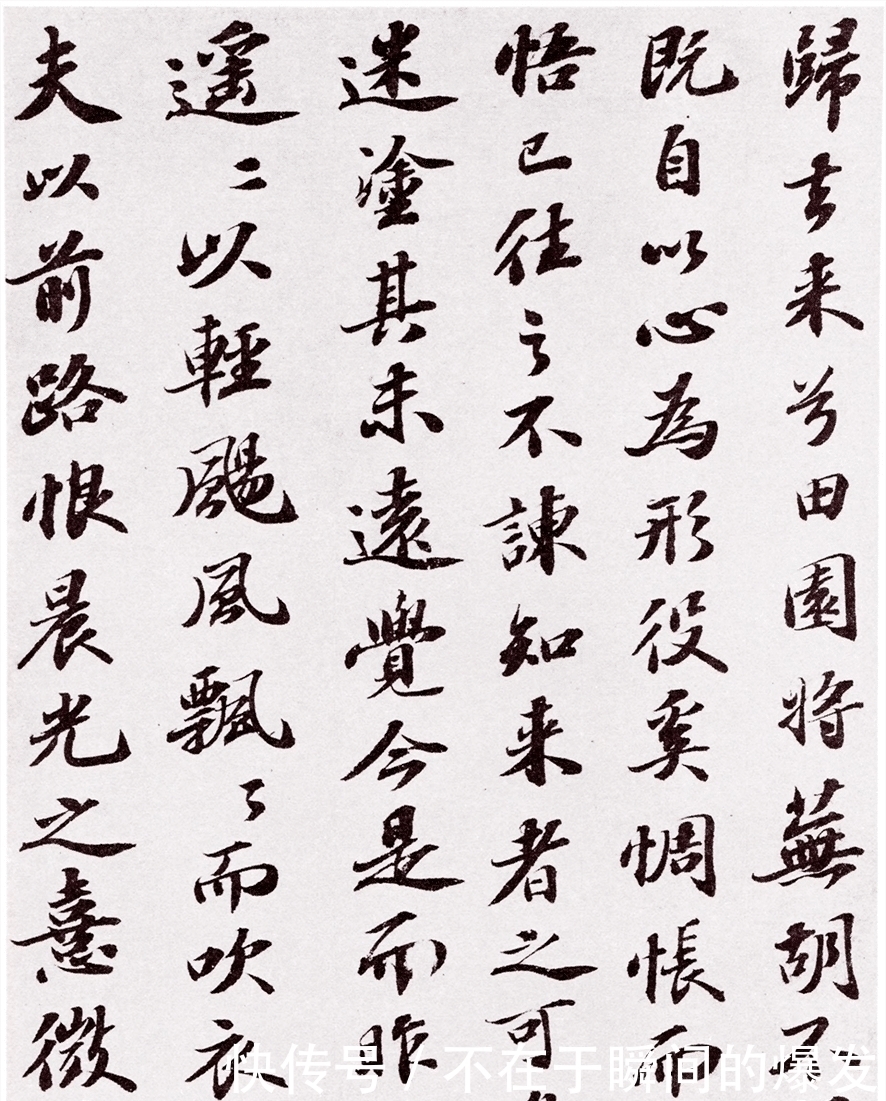 歸去来兮田園將蕪胡
既自以心為形役奚惆悵而
悟已往之不諫知来者之可
迷塗其未遠覺今是而昨
遥〻以輕颺風飄〻而吹衣
夫以前路恨晨光之憙微
快传号 / 不在于瞬间的爆发